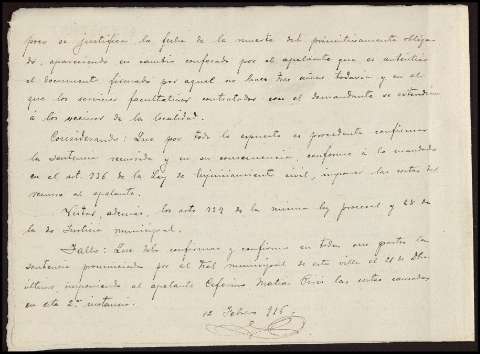 poco se justifica la fecha de la muerte del primitivamente obliga-
do, apareciendo en cambio confesado por el apelante que es auténtico
el documento firmado por aquel no hace tres años todavía y en el
que los servicios facultativos contratados con el demandante se extendían
á los vecinos de la localidad.
Considerando: Que por todo lo expuesto es procedente confirmar
la sentencia recurrida y en su consecuencia, conforme á lo mandado
en el art. 736 de la Ley de Enjuiciamiento civil, imponer las costas del
recurso al apelante.
Vistos, además, los arts 359 de la misma ley procesal y 28 de
la de Justicia municipal.
Fallo: Que debo confirmar y confirmo en todas sus partes la
sentencia pronunciada por el Tral municipal de esta villa el 21 de Dbre
último, imponiendo al apelante Ceferino Matías las costas causadas
en esta 2ª instancia.
12 Febro 916.